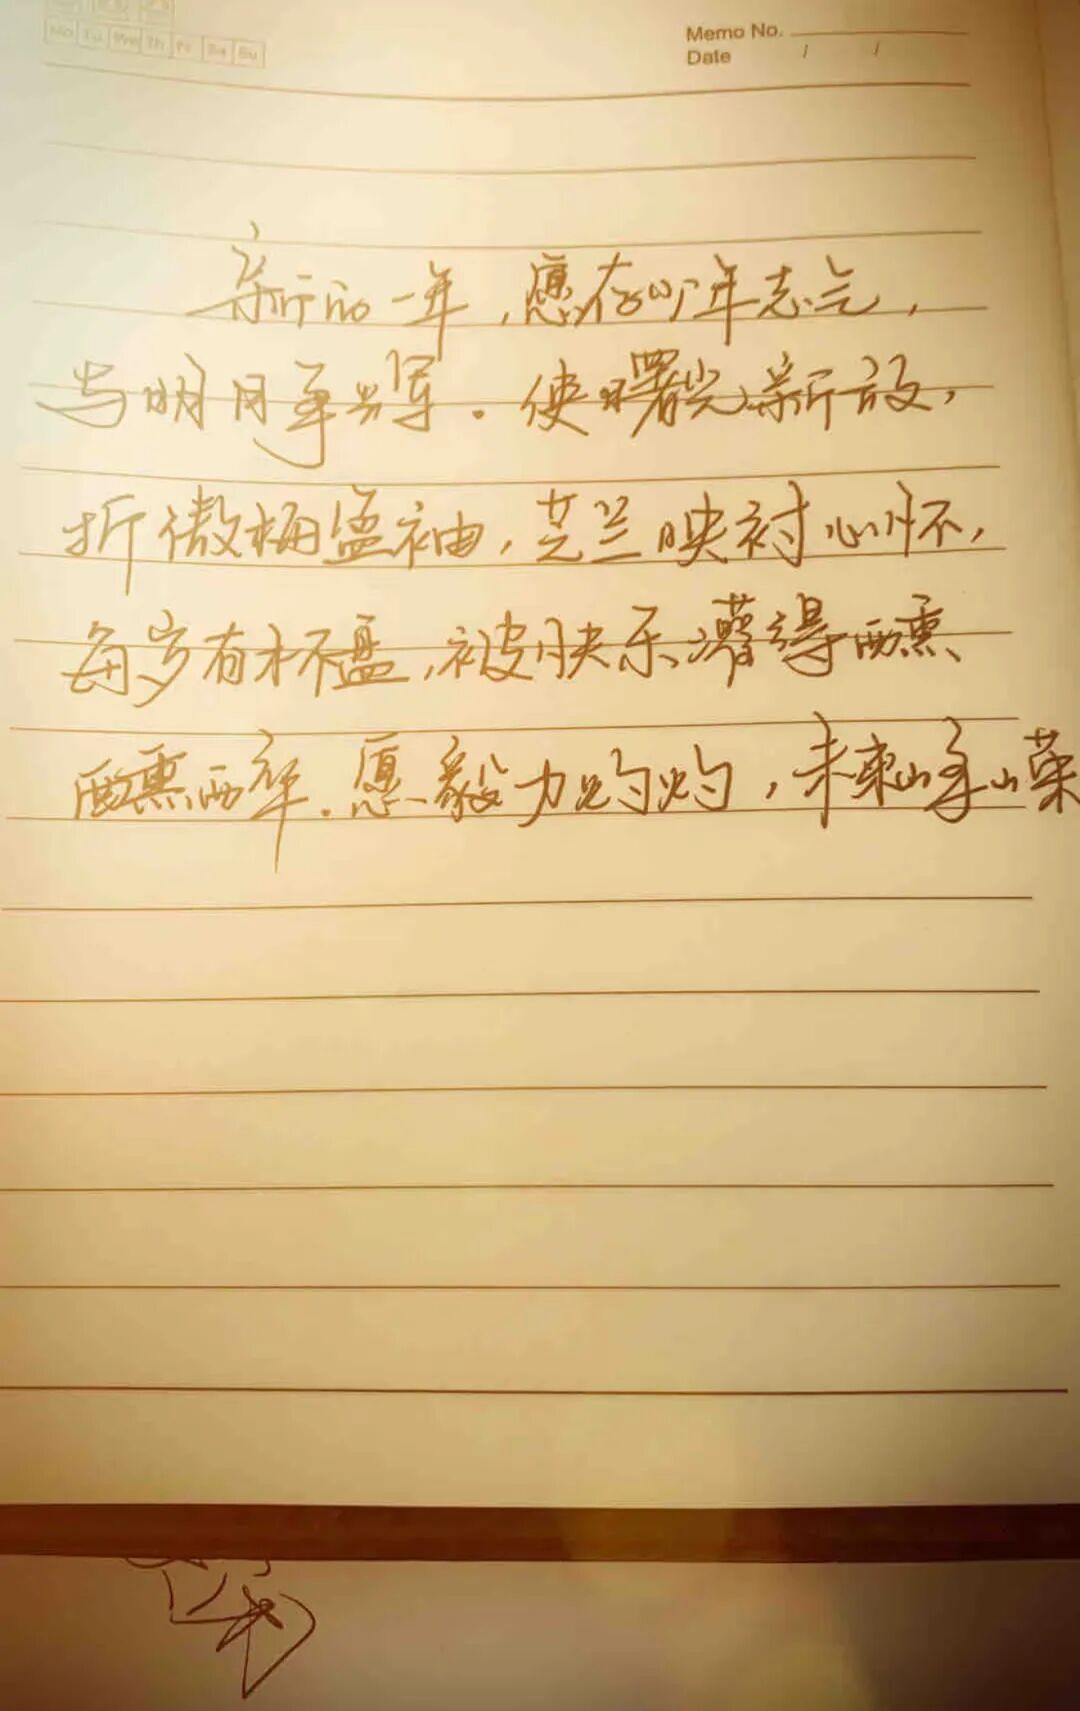 Mo Tu We Th Fr Sa Su
Memo No.
Date / /
新的一年，愿存少年志气，
与明月争辉。使曙光新放，
折傲梅盈袖，芝兰映衬心怀，
每岁有杯盘，被快乐灌得醺
醺而醉。愿毅力灼灼，未来峥嵘